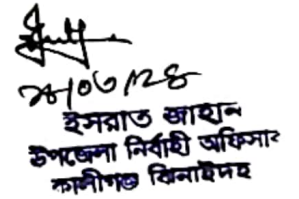 ২৮/০৩/২৪
ইসরাত জাহান
উপজেলা নির্বাহী অফিসার
কালীগঞ্জ ঝিনাইদহ